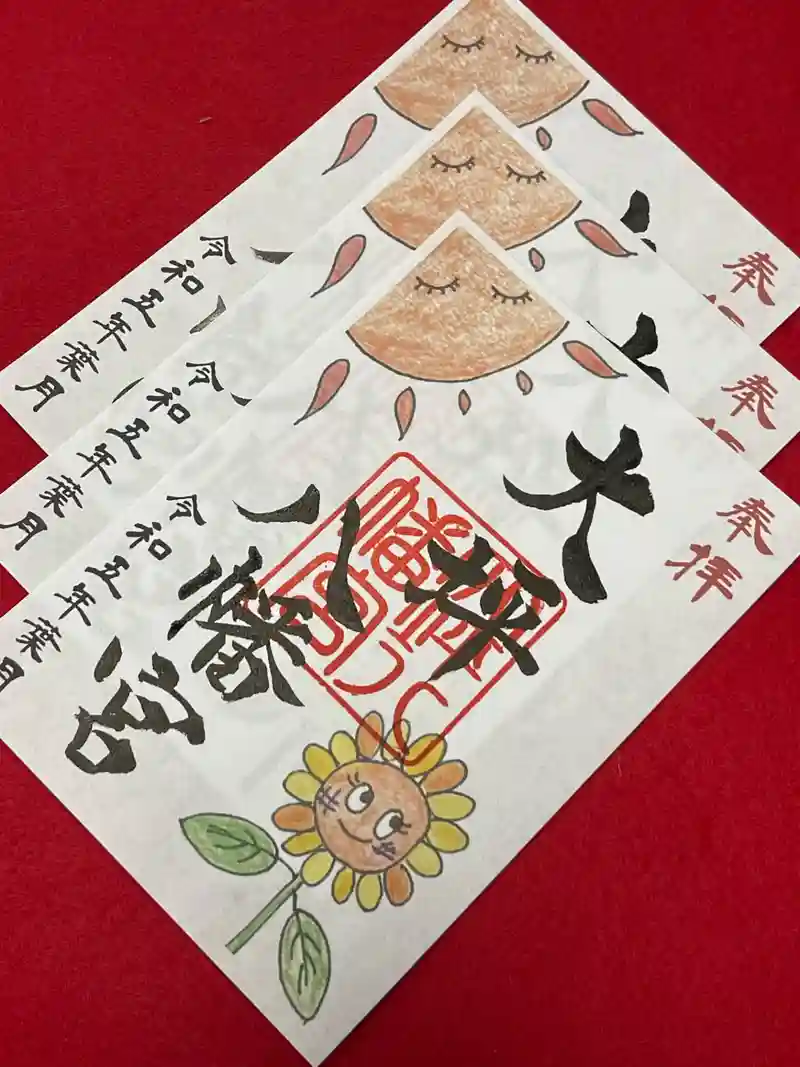 奉
令和五年葉月
奉
令和五年葉月
奉拝
大坪八幡宮
令和五年葉月